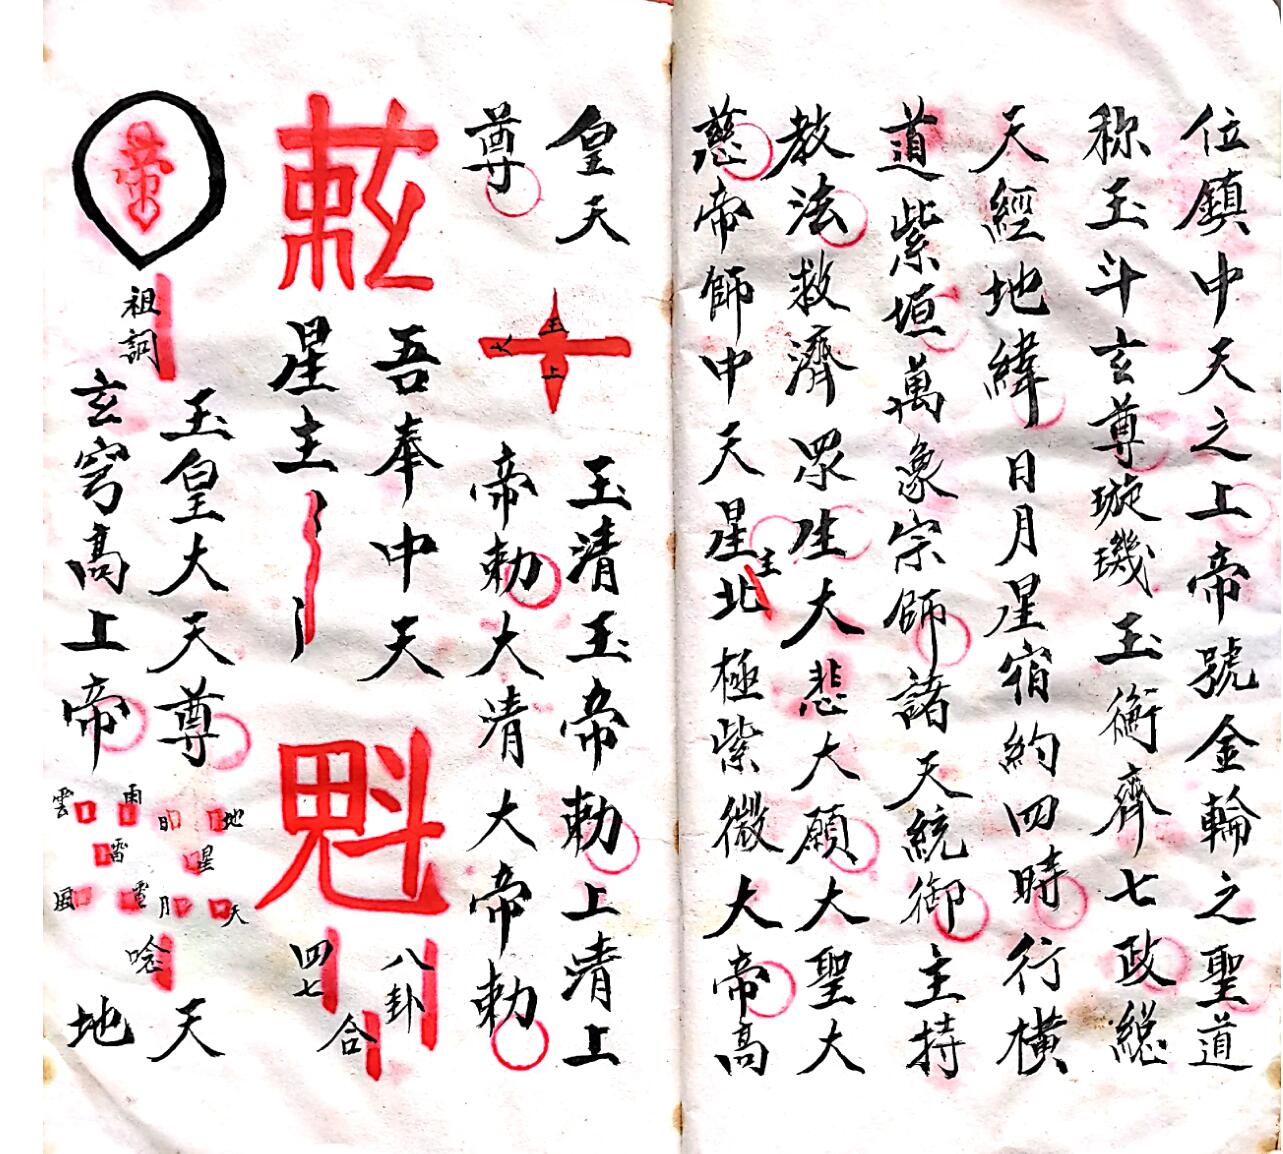 位鎮中天之上帝號金輪之聖道
称玉斗玄尊璇璣玉衡齊七政總
天經地緯日月星宿約四時行橫
道紫垣萬象宗師諸天統御主持
教法救濟眾生大悲大願大聖大
慈帝師中天星主北極紫微大帝高
皇天
尊
玉
大
上
玉清玉帝勅上清上
帝勅大清大帝勅
吾奉中天
星主
魁
八卦
四七
合
帝
祖諷
玉皇大天尊
玄穹高上帝
地
日
雨
雲
星
雷
天
月
電
風
唸
天
地